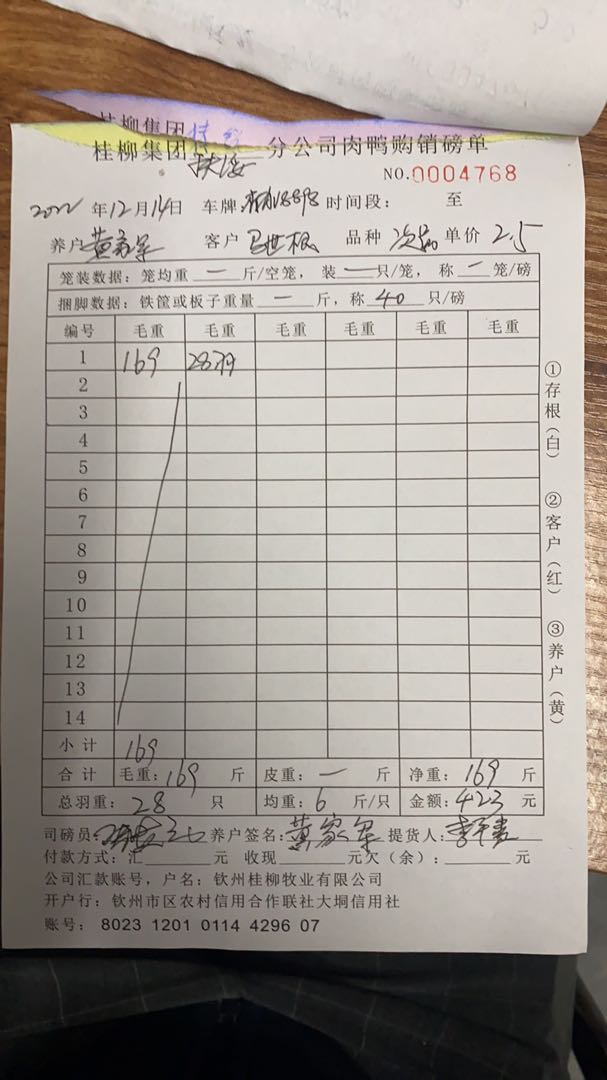 桂柳集团
桂柳集团扶绥分公司肉鸭购销磅单
NO.0004768
2022年12月14日 车牌: 时间段: 至
养户黄家军 客户 马世根 品种 次苗 单价 2.5
笼装数据: 笼均重 — 斤/空笼, 装 — 只/笼, 称 — 笼/磅
捆脚数据: 铁筐或板子重量 — 斤, 称 40 只/磅
编号 毛重 毛重 毛重 毛重 毛重 毛重
1 169 28羽
2
3
4
5
6
7
8
9
10
11
12
13
14
小计 169
合计 毛重: 169 斤 皮重: — 斤 净重: 169 斤
总羽重: 28 只 均重: 6 斤/只 金额: 423 元
司磅员: 养户签名: 黄家军 提货人:
付款方式: 汇 元 收现 元欠(余): 元
公司汇款账号, 户名: 钦州桂柳牧业有限公司
开户行: 钦州市区农村信用合作联社大垌信用社
账号: 8023 1201 0114 4296 07
①存根(白)
②客户(红)
③养户(黄)